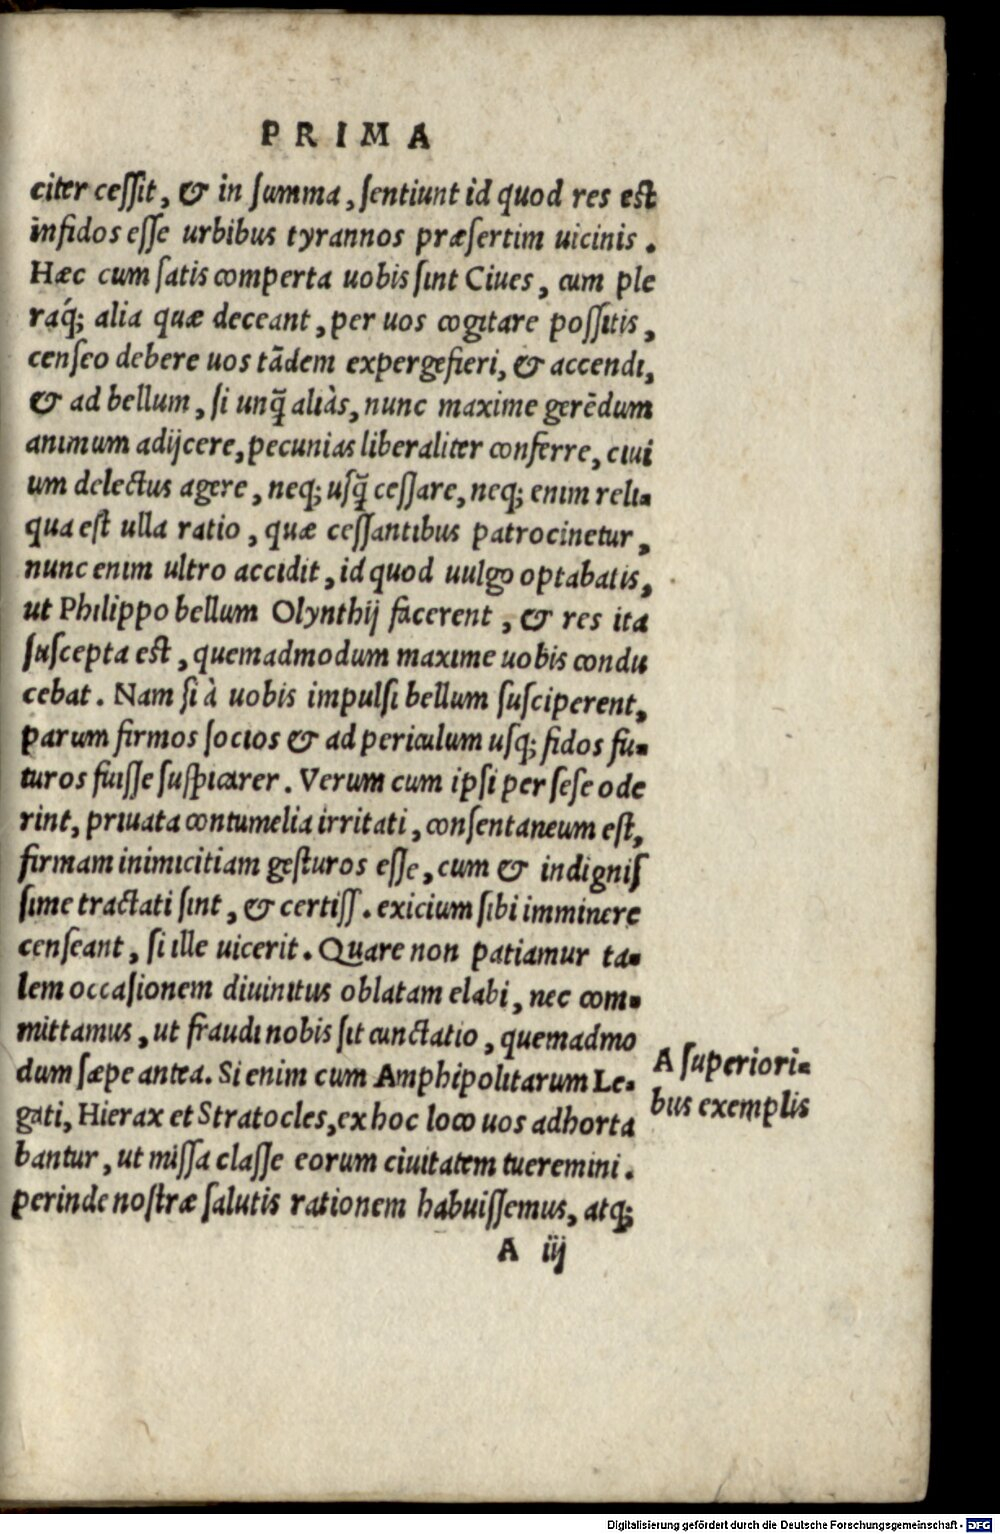 PRIMA
citer cessit, & in summa, sentiunt id quod res est
infidos esse urbibus tyrannos præsertim uicinis.
Hæc cum satis comperta uobis sint Ciues, cum ple
raq́; alia quæ deceant, per uos cogitare possitis,
censeo debere uos tādem expergefieri, & accendi,
& ad bellum, si unq̄ aliàs, nunc maxime gerēdum
animum adijcere, pecunias liberaliter conferre, ciui
um delectus agere, neq; usq̄ cessare, neq; enim reli-
qua est ulla ratio, quæ cessantibus patrocinetur,
nunc enim ultro accidit, id quod uulgo optabatis,
ut Philippo bellum Olynthij facerent, & res ita
suscepta est, quemadmodum maxime uobis condu
cebat. Nam si à uobis impulsi bellum susciperent,
parum firmos socios & ad periculum usq; fidos fu-
turos fuisse suspicarer. Verum cum ipsi per sese ode
rint, priuata contumelia irritati, consentaneum est,
firmam inimicitiam gesturos esse, cum & indignis
sime tractati sint, & certiss. exicium sibi imminere
censeant, si ille uicerit. Quare non patiamur ta-
lem occasionem diuinitus oblatam elabi, nec com-
mittamus, ut fraudi nobis sit cunctatio, quemadmo
dum sæpe antea. Si enim cum Amphipolitarum Le-
gati, Hierax et Stratocles, ex hoc loco uos adhorta
bantur, ut missa classe eorum ciuitatem tueremini.
perinde nostræ salutis rationem habuissemus, atq;
A iij
A superiori-
bus exemplis
Digitalisierung gefördert durch die Deutsche Forschungsgemeinschaft - DFG